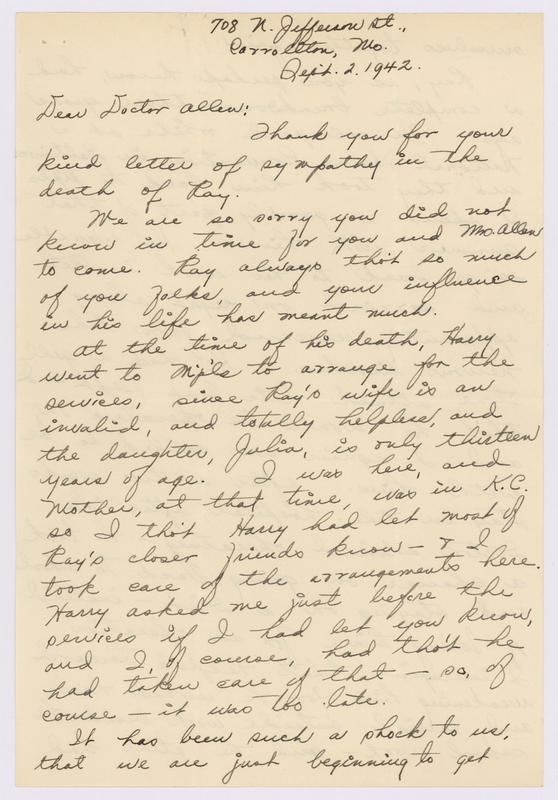 708 N. Jefferson St.,
Carrollton, Mo.
Sept. 2. 1942.
Dear Doctor Allen:
Thank you for your
kind letter of sympathy in the
death of Ray.
We are so sorry you did not
know in time for you and Mrs. Allen
to come. Ray always tho't so much
of you folks, and your influence
in his life has meant much.
At the time of his death, Harry
went to Mpls to arrange for the
services, since Ray's wife is an
invalid, and totally helpless, and
the daughter, Julia, is only thirteen
years of age. I was here, and
Mother, at that time, was in K.C.
so I tho't Harry had let most of
Ray's closer friends know - & I
took care of the arrangements here.
Harry asked me just before the
services if I had let you know,
and I, of course, had tho't he
had taken care of that - so, of
course - it was too late.
It has been such a shock to us,
that we are just beginning to get